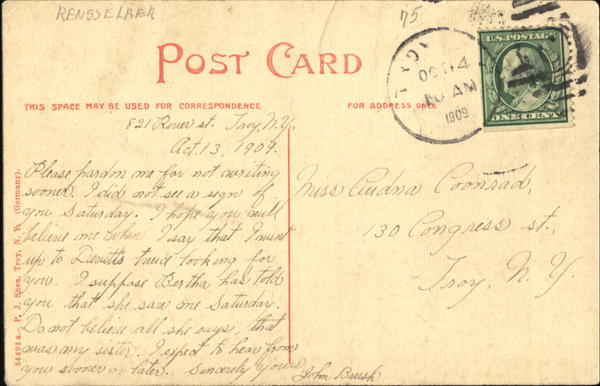 RENSSELAER
75
POST CARD
THIS SPACE MAY BE USED FOR CORRESPONDENCE.
FOR ADDRESS ONLY.
TROY
OCT 14
AM
1909
U.S. POSTAGE
ONE CENT
821 River st. Troy, N.Y.
Oct. 13, 1909.
Please pardon me for not writing
sooner. I did not see a sign of
you Saturday. I hope you will
believe me when I say that I went
up to twice looking for
you. I suppose Bertha has told
you that she saw me Saturday.
Do not believe all she says, that
was my sister. I expect to hear from
you sooner or later. Sincerely yours
John Brush
Miss Coonrad,
130 Congress st.,
Troy, N.Y.
54492 a - P. J. Shea, Troy, N. Y. (Germany).